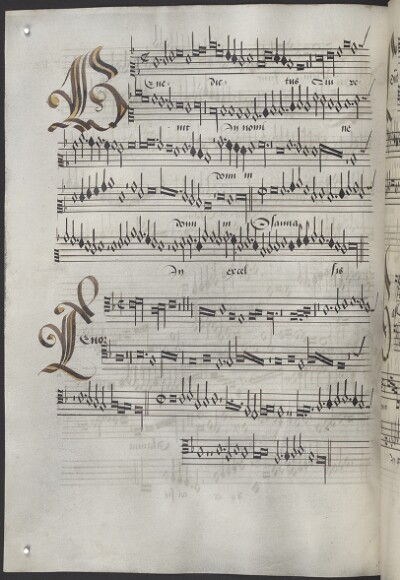 Bene dic tus Qui ve
nit In nomi ne
domi ni
domi ni Osanna
In excel sis
Tenor